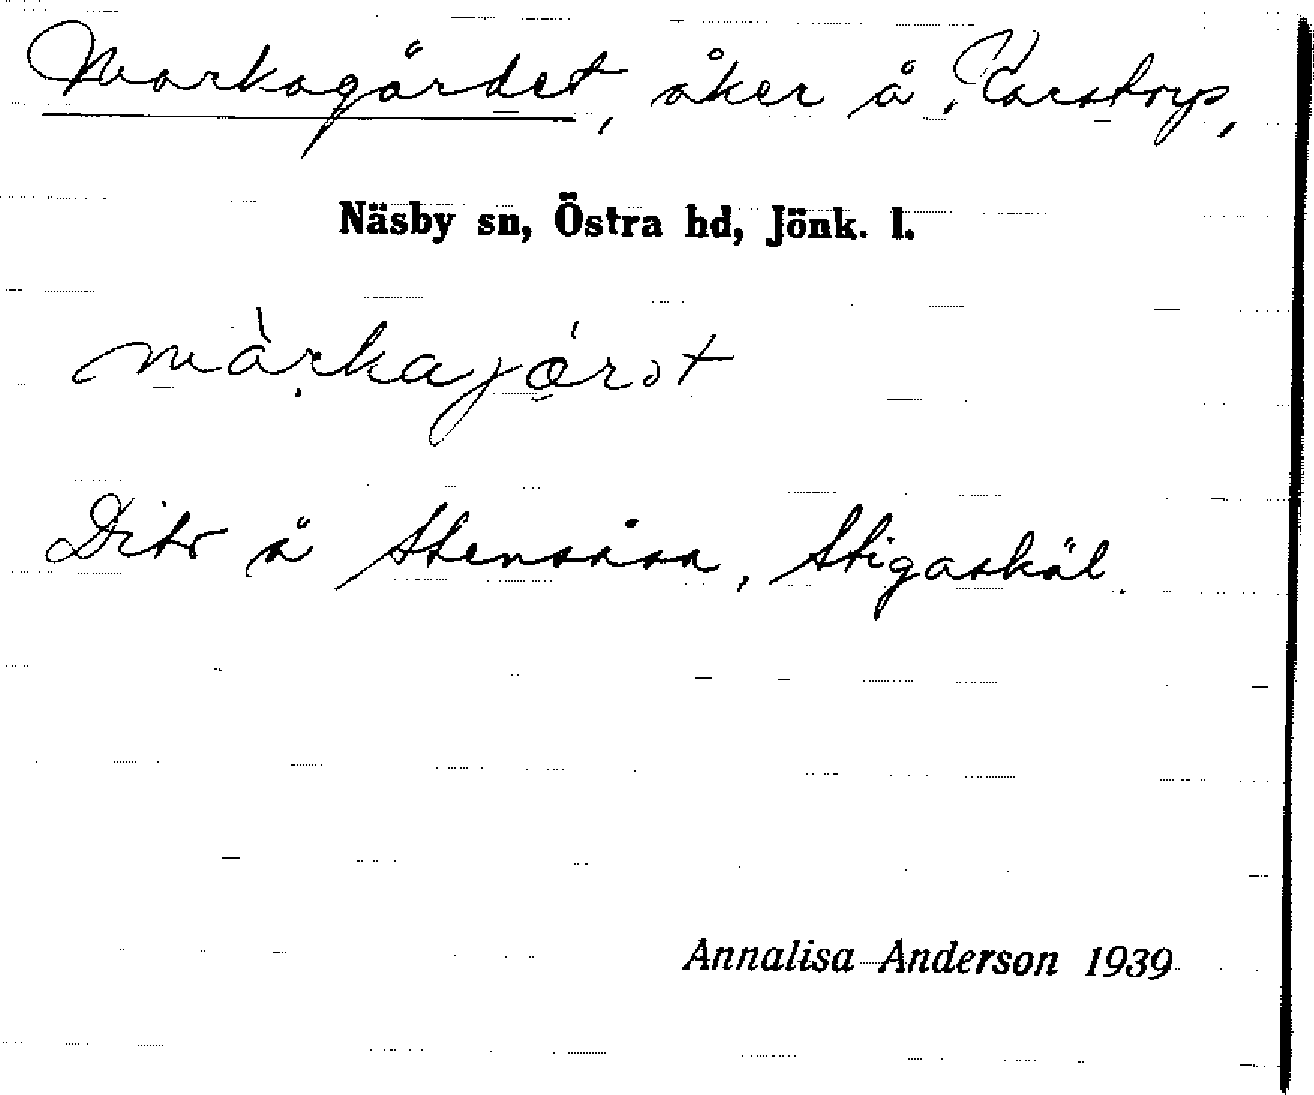 Markagärdet, åker å Karstorp,
Näsby sn, Östra hd, Jönk. l.
màrkajǿrət
Dito å Stensåsa, Stigaskäl.
Annalisa Anderson 1939